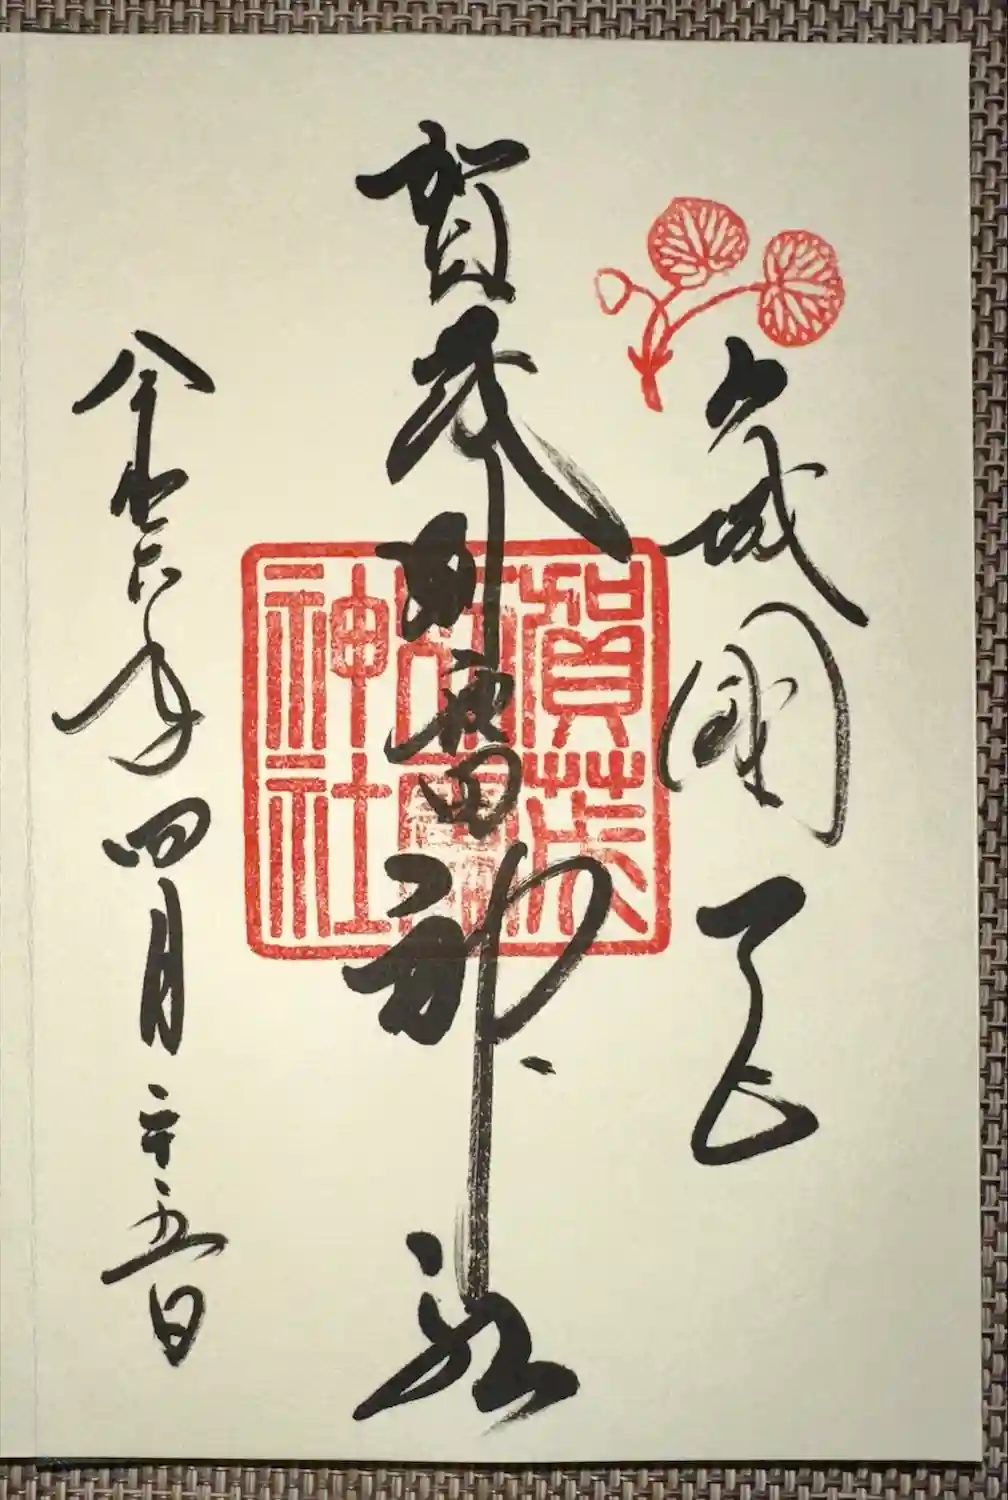 山城國
賀茂別雷神社
令和六年四月二十五日
賀茂
別雷
神社